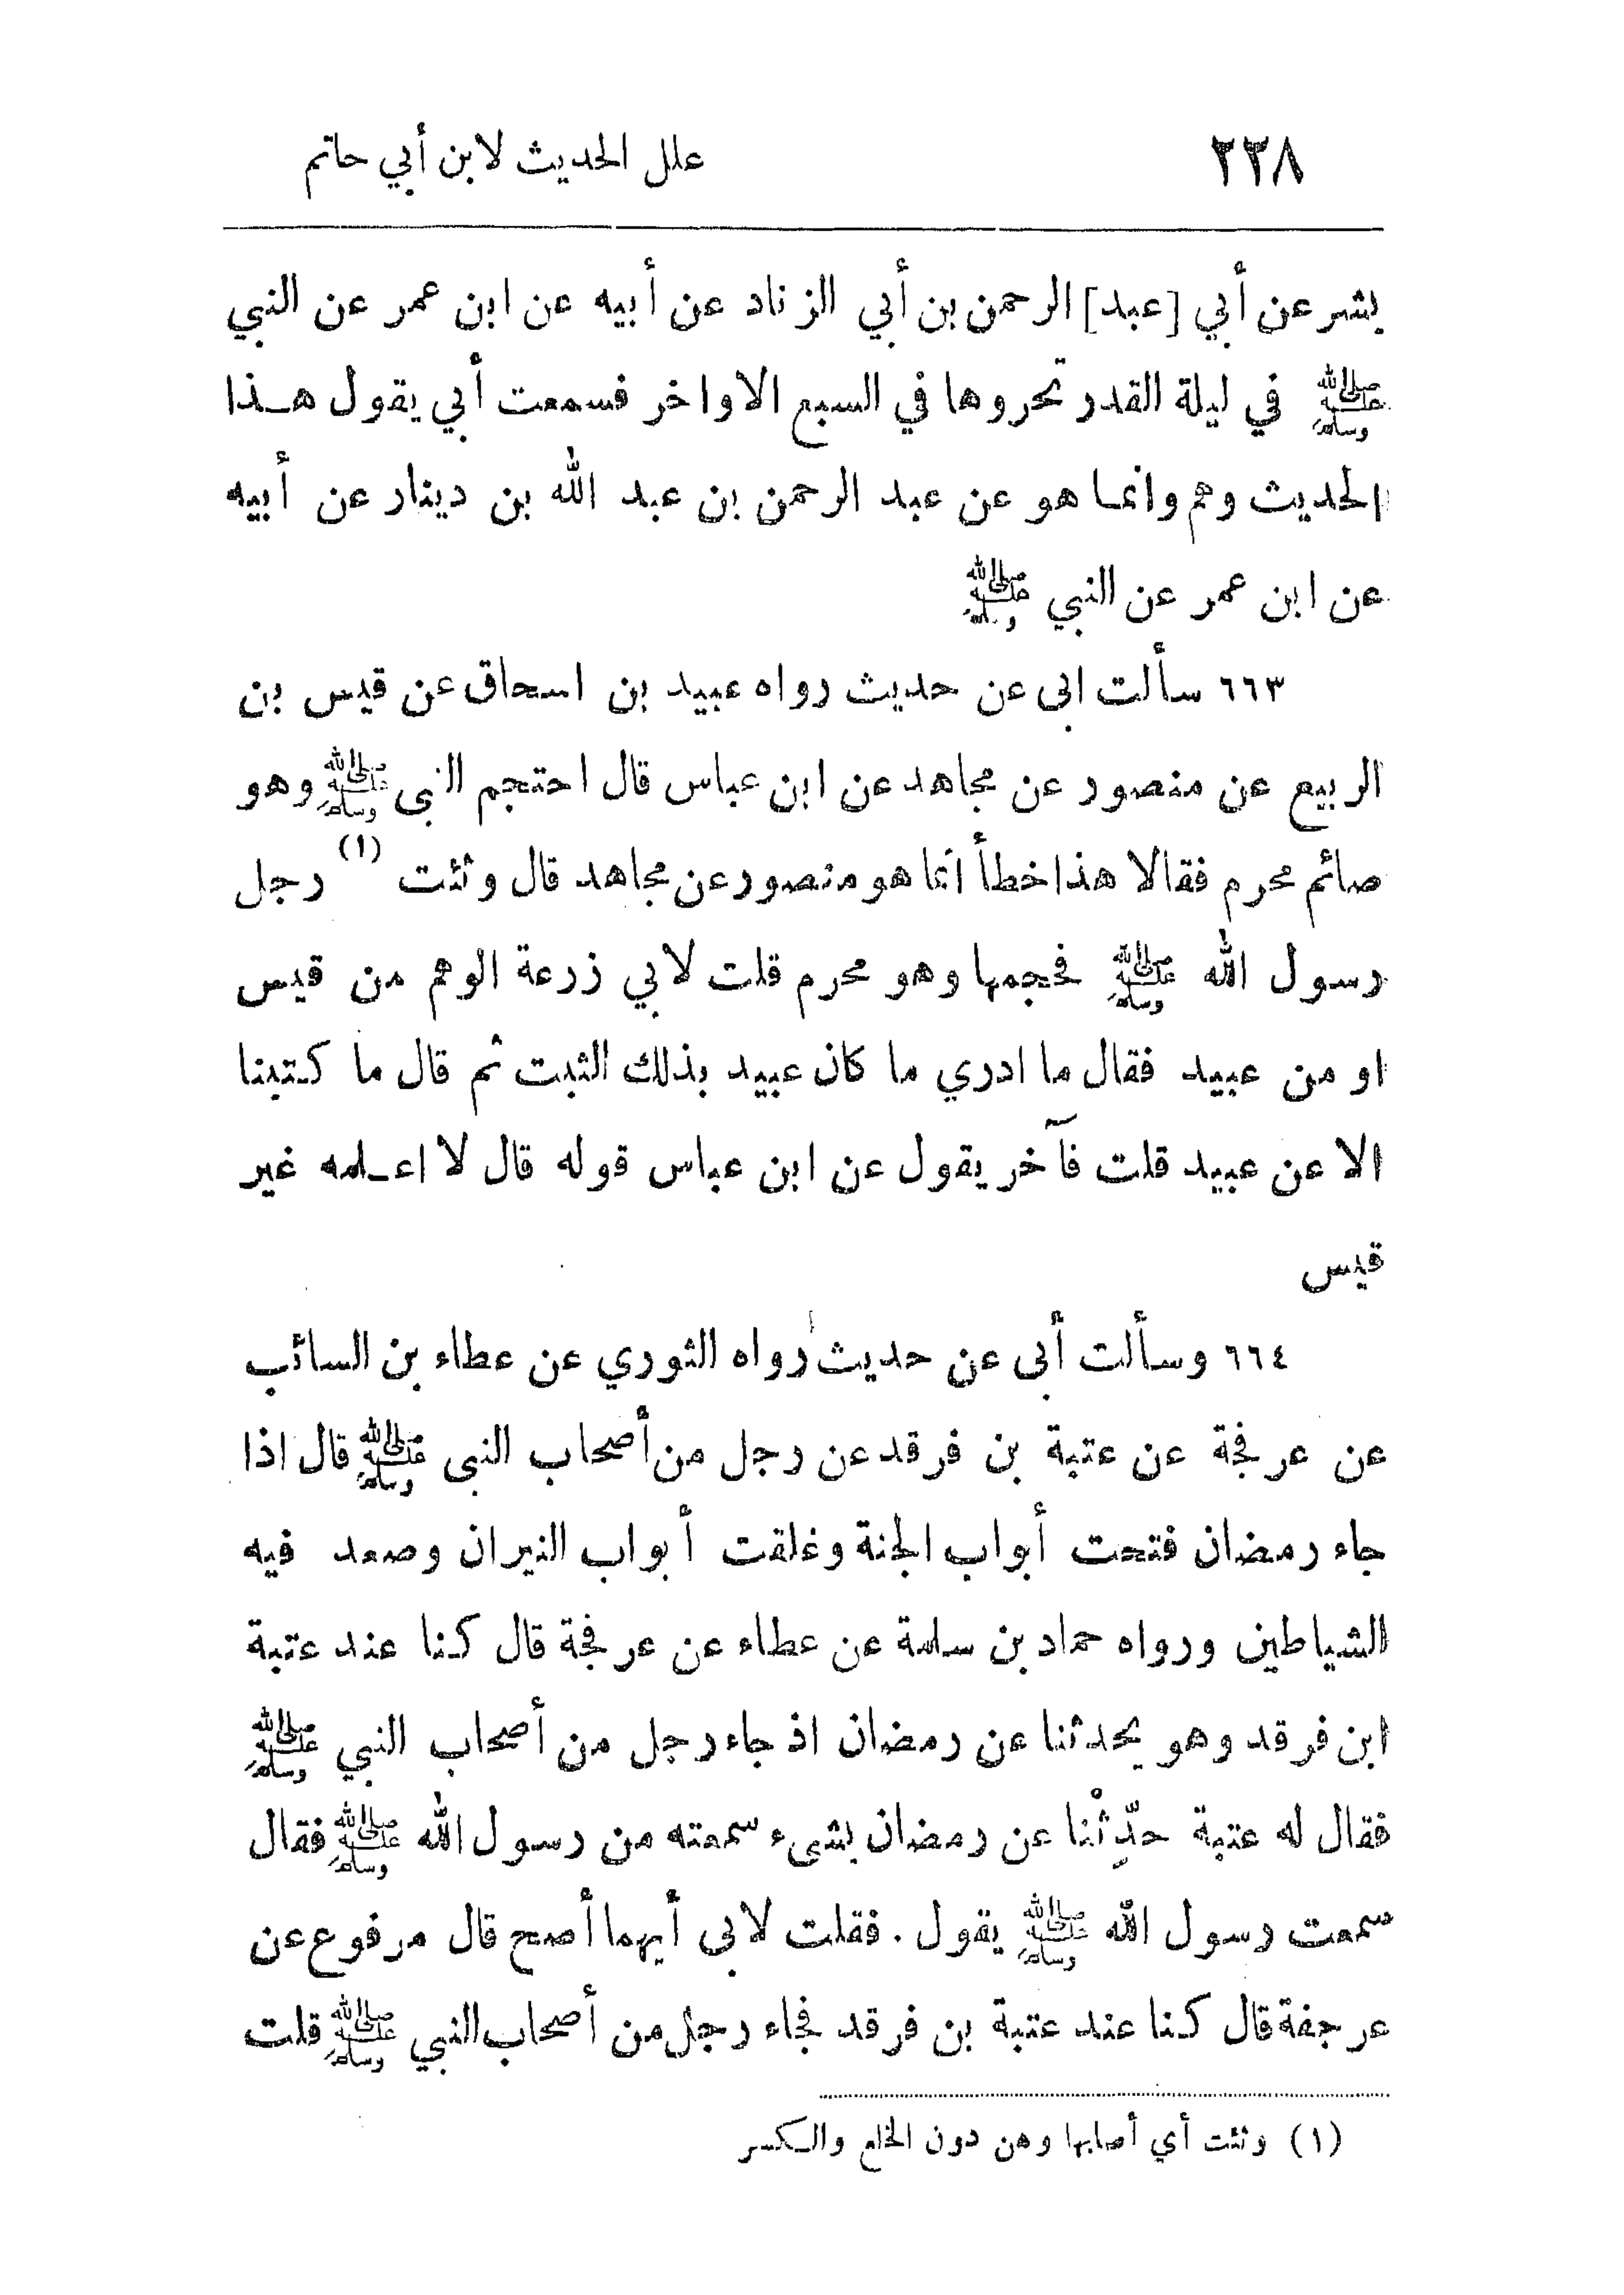 ٢٣٨
علل الحديث لابن أبي حاتم
بشر عن أبي [عبد] الرحمن بن أبي الزناد عن أبيه عن ابن عمر عن النبي
ﷺ في ليلة القدر تحروها في السبع الاواخر فسمعت أبي يقول هذا
الحديث وهم وانما هو عن عبد الرحمن بن عبد الله بن دينار عن أبيه
عن ابن عمر عن النبي ﷺ
٦٦٣ سألت ابى عن حديث رواه عبيد بن اسحاق عن قيس بن
الربيع عن منصور عن مجاهد عن ابن عباس قال احتجم النبى ﷺ وهو
صائم محرم فقالا هذا خطأ انما هو منصور عن مجاهد قال وثئت (١) رجل
رسول الله ﷺ فحجمها وهو محرم قلت لابي زرعة الوهم من قيس
او من عبيد فقال ما ادري ما كان عبيد بذلك الثبت ثم قال ما كتبنا
الا عن عبيد قلت فآخر يقول عن ابن عباس قوله قال لا اعلمه غير
قيس
٦٦٤ وسألت أبى عن حديث رواه الثوري عن عطاء بن السائب
عن عرفجة عن عتبة بن فرقد عن رجل من أصحاب النبى ﷺ قال اذا
جاء رمضان فتحت أبواب الجنة وغلقت أبواب النيران وصعد فيه
الشياطين ورواه حماد بن سلمة عن عطاء عن عرفجة قال كنا عند عتبة
ابن فرقد وهو يحدثنا عن رمضان اذ جاء رجل من أصحاب النبي ﷺ
فقال له عتبة حدِّثْنا عن رمضان بشىء سمعته من رسول الله ﷺ فقال
سمعت رسول الله ﷺ يقول . فقلت لابى أيهما أصح قال مرفوع عن
عرجفة قال كنا عند عتبة بن فرقد فجاء رجل من أصحاب النبي ﷺ قلت
(١) وثئت أي أصابها وهن دون الخلع والكسر